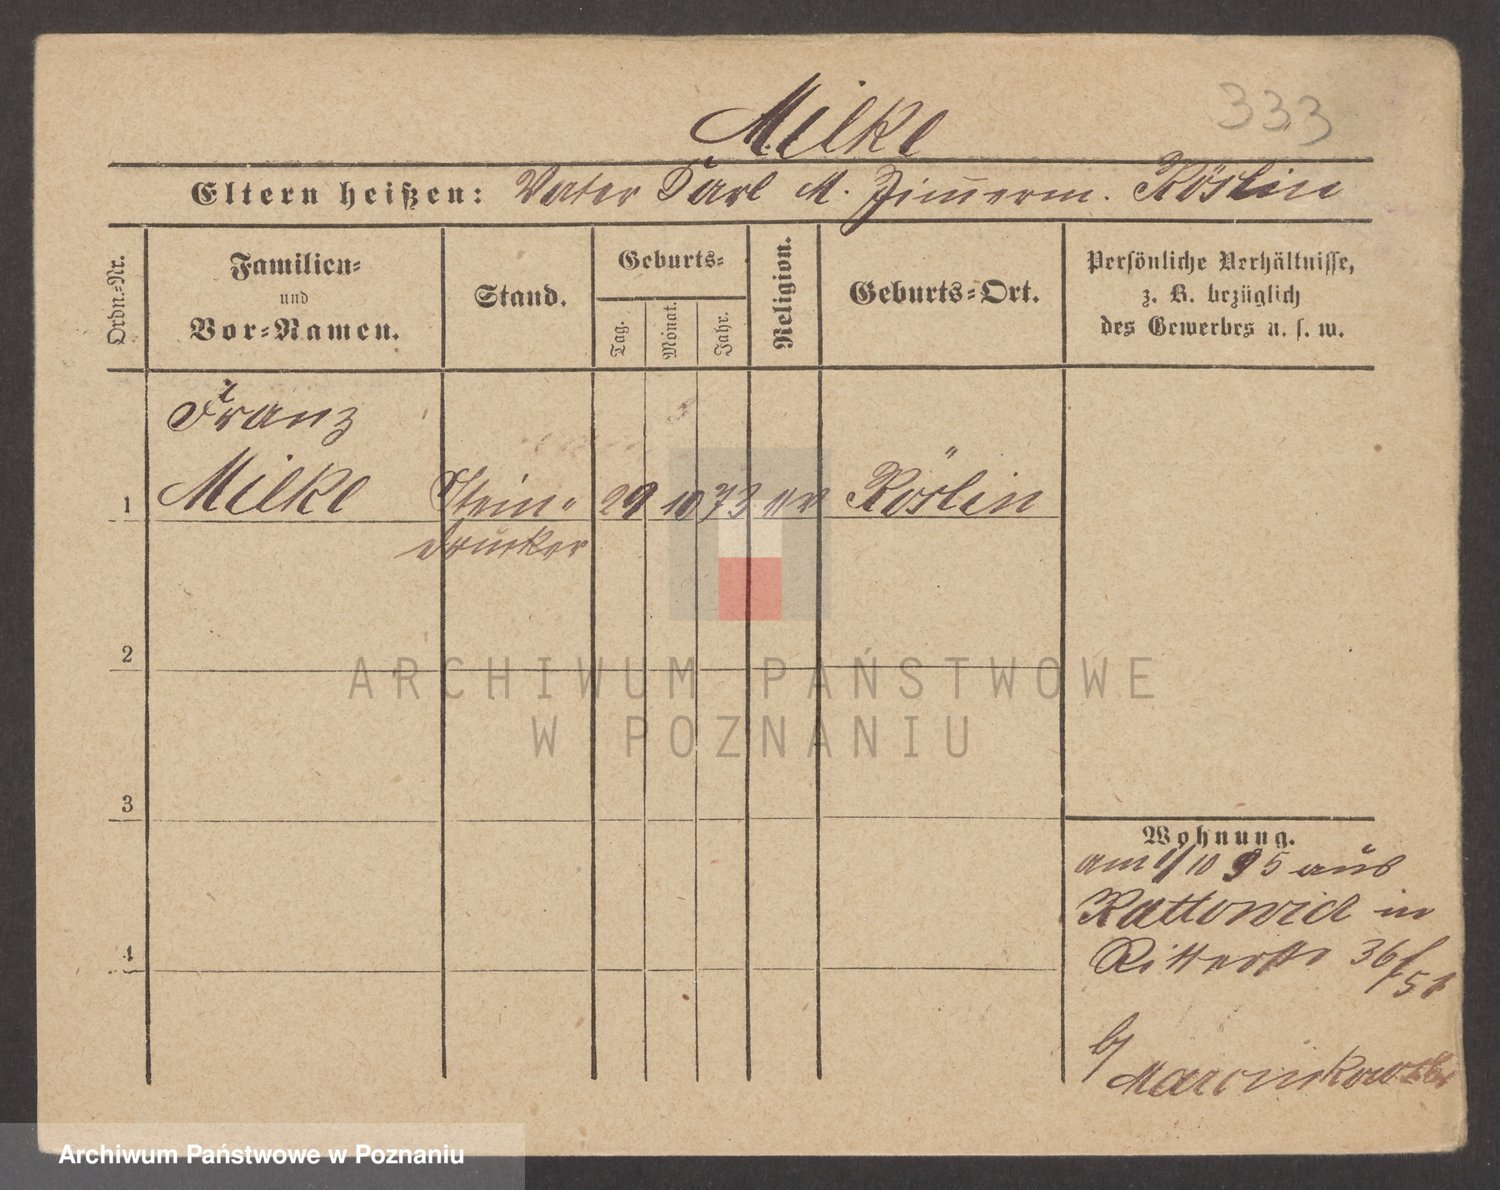 333
Milke
Eltern heißen: Vater Carl M. Zimmerm. Köslin
Ordn.-Nr.
Familien-
und
Vor-Namen.
Stand.
Geburts-
Tag.
Monat.
Jahr.
Religion.
Geburts-Ort.
Persönliche Verhältnisse,
z. B. bezüglich
des Gewerbes u. s. w.
Franz
1 Milke Stein- 29 10 73 ev Köslin
drucker
2
3
4
Wohnung.
am 1/10 95 aus
Kattowicz in
Ritterstr 36/
51
b/
Marcinkowski
ARCHIWUM PAŃSTWOWE
W POZNANIU
Archiwum Państwowe w Poznaniu